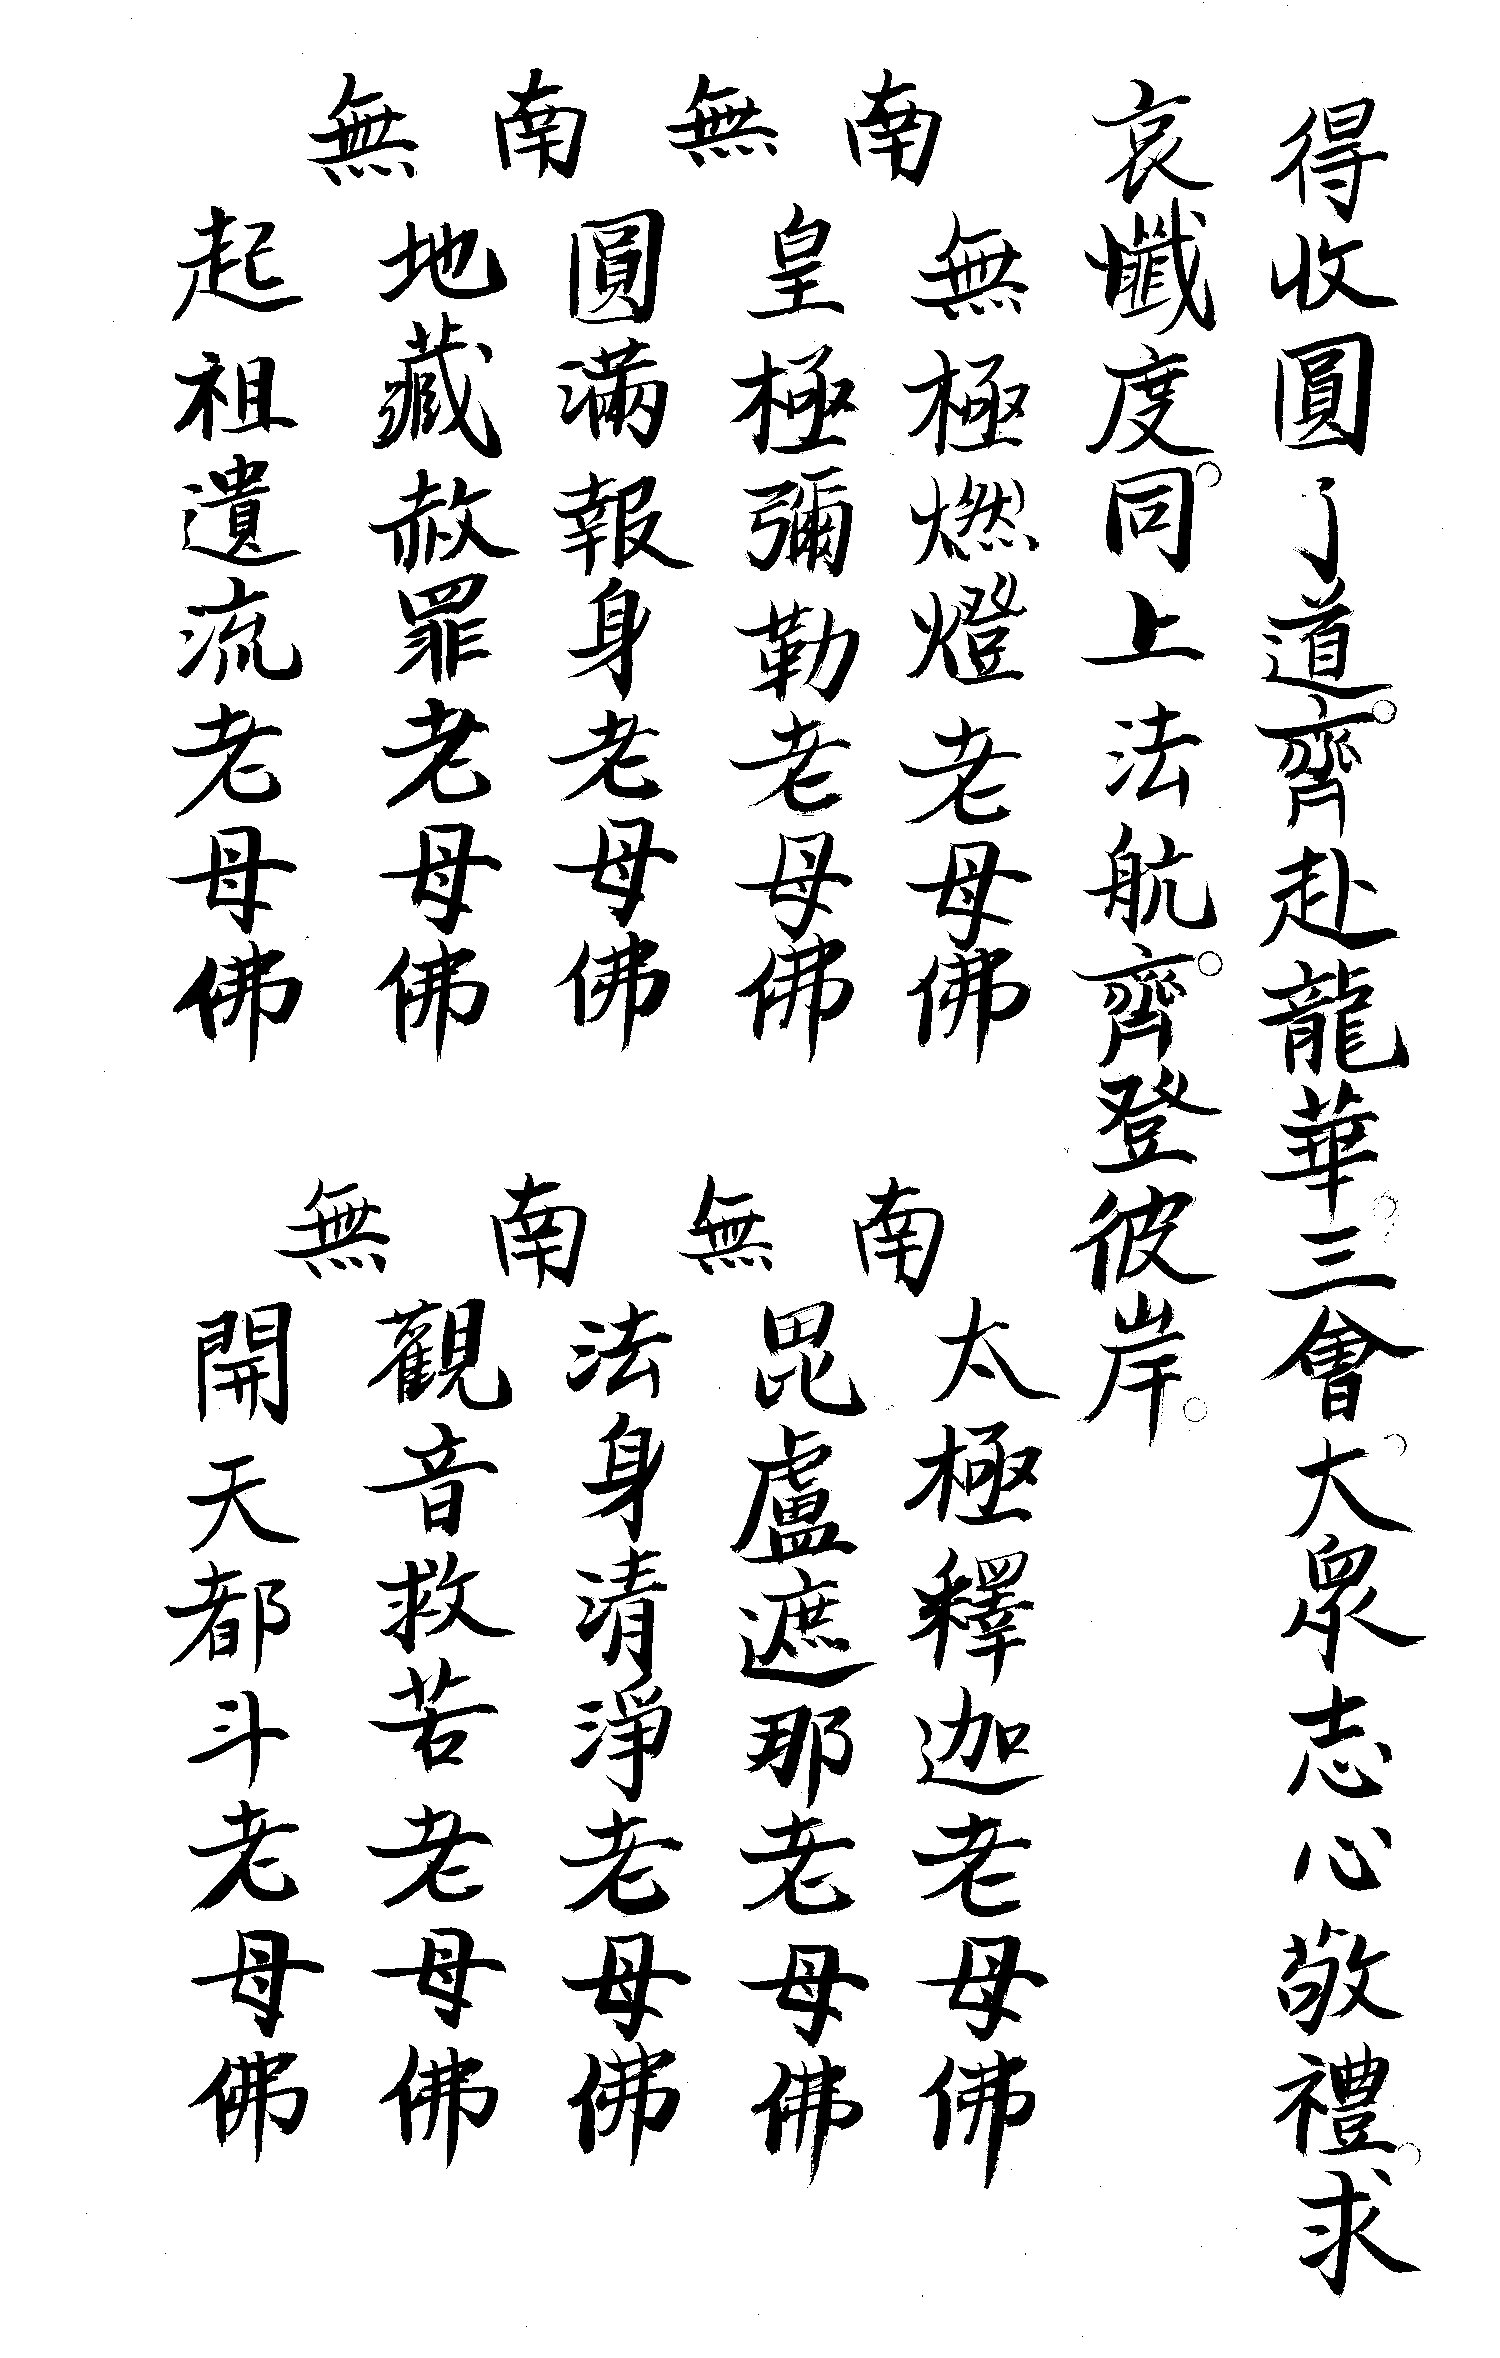 得收圓了道。齊赴龍華。三會。大眾志心敬禮。求
哀懺度。同上法航。齊登彼岸。
南無南無
無極燃燈老母佛
皇極彌勒老母佛
圓滿報身老母佛
地藏赦罪老母佛
起祖遺流老母佛
南無南無
太極釋迦老母佛
毘盧遮那老母佛
法身清淨老母佛
觀音救苦老母佛
開天都斗老母佛